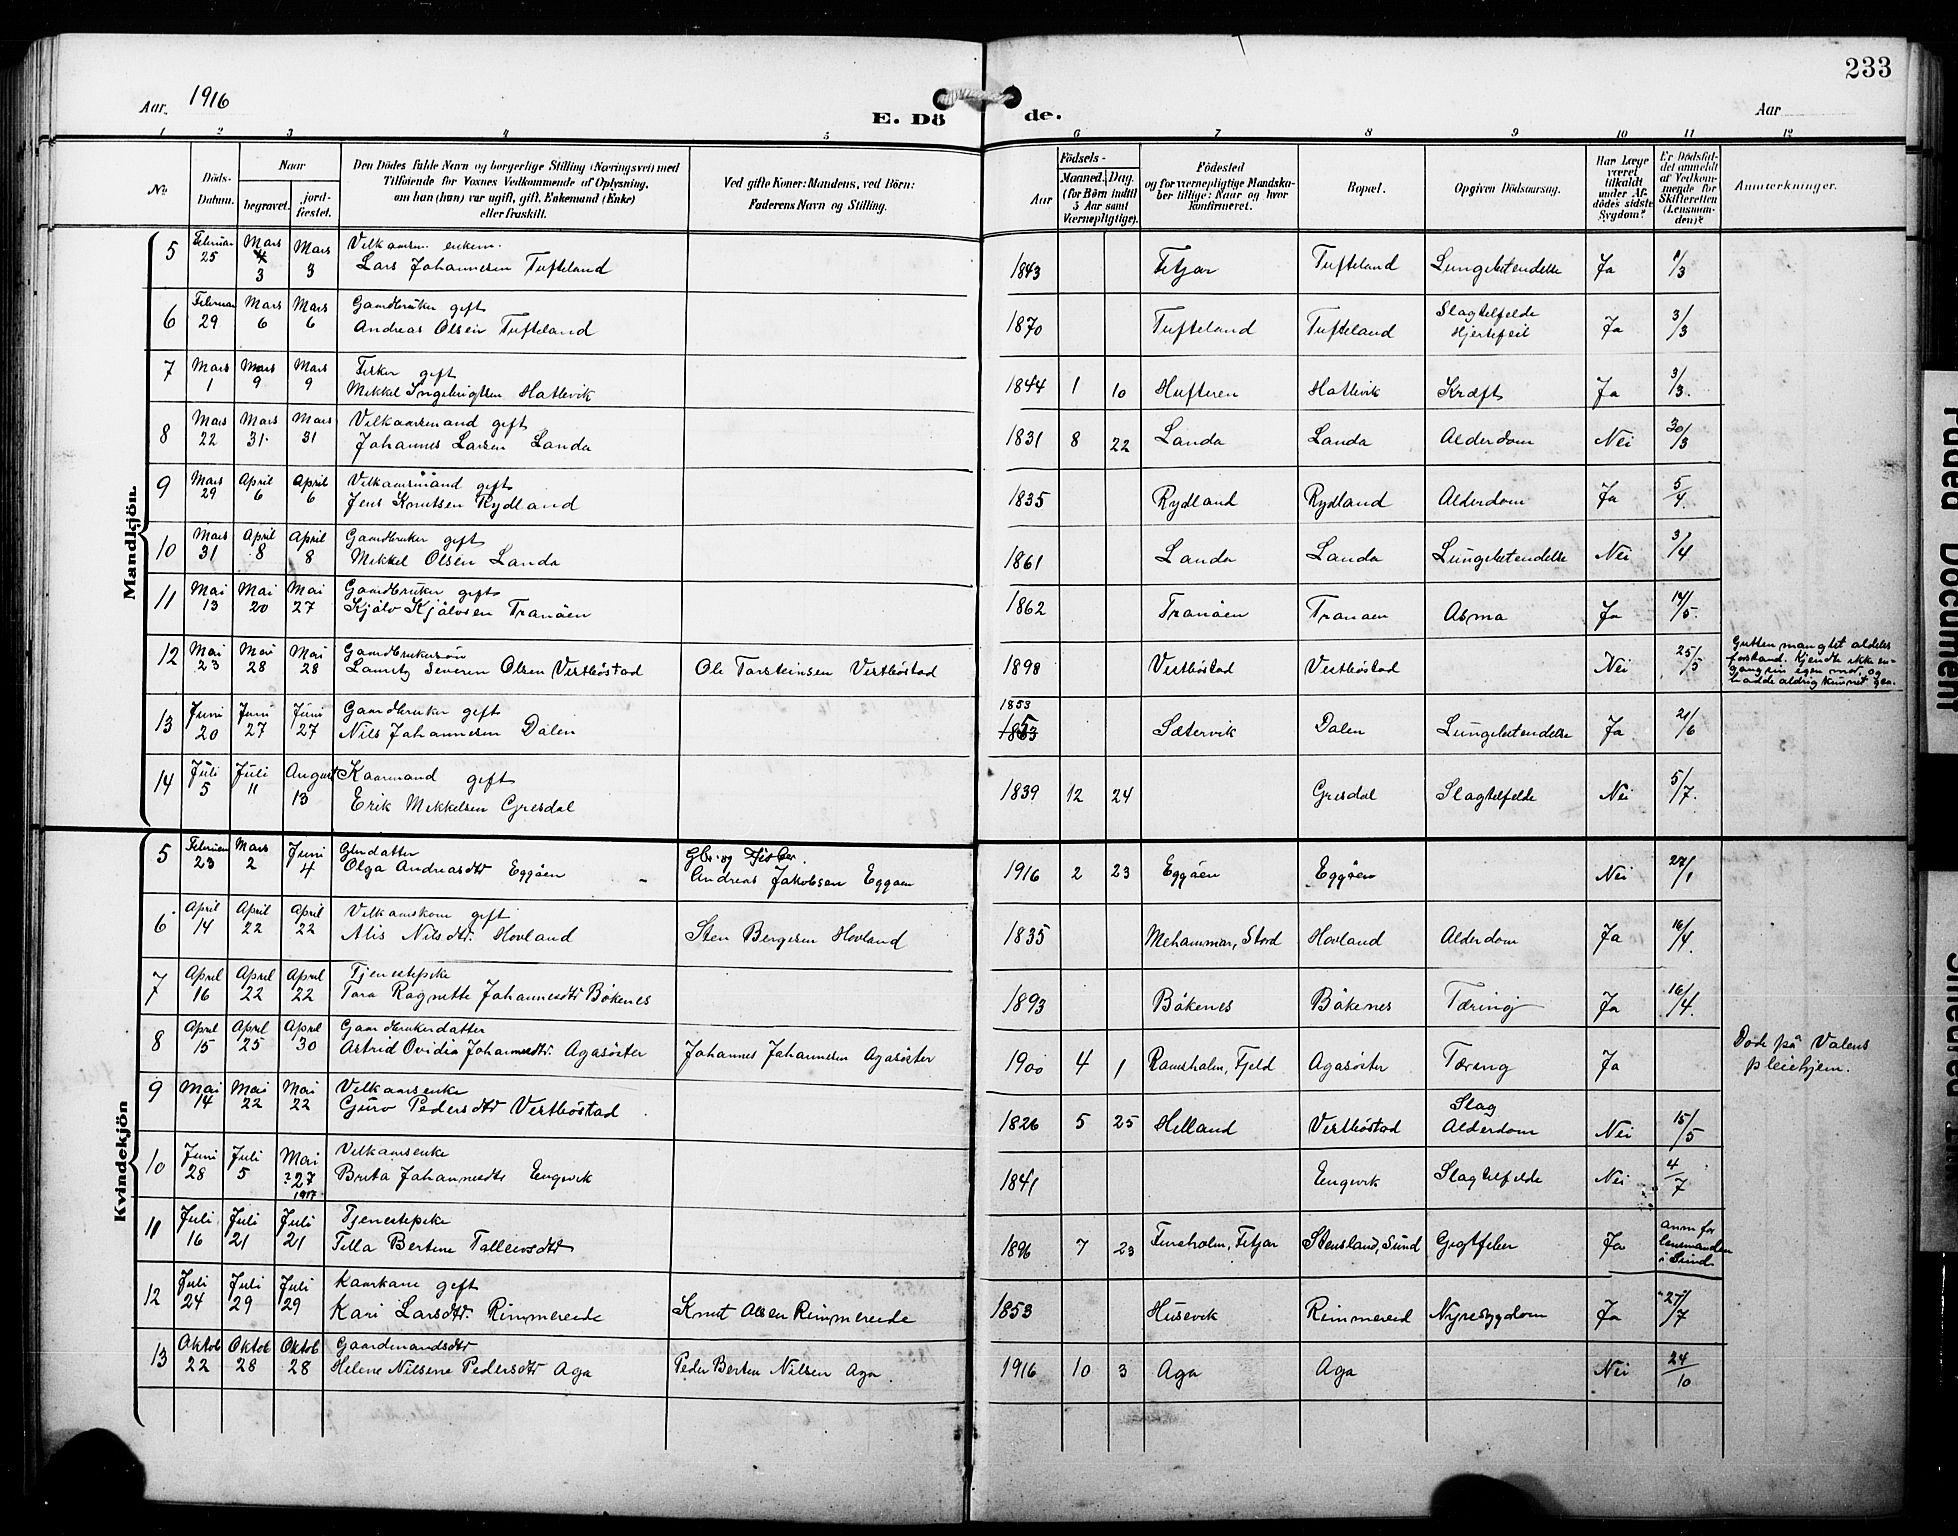 233
Aar. 1916
E. Döde.
Aar
1 2 3 4 5 6 7 8 9 10 11 12
No
Döds-Datum.
Naar
begravet.
jord-fæstet.
Den Dödes fulde Navn og borgerlige Stilling (Næringsvei) med
Tilföiende for Voxnes Vedkommende af Oplysning,
om han (hun) var ugift, gift, Enkemand (Enke)
eller fraskilt.
Ved gifte Koner: Mandens, ved Börn:
Faderens Navn og Stilling.
Födsels-
Aar
Maaned. Dag.
(for Börn indtil
5 Aar samt
Værnepligtige).
Födested
og for værnepligtige Mandska-
ber tillige: Naar og hvor
konfirmeret.
Bopæl.
Opgiven Dödsaarsag.
Har Læge
været
tilkaldt
under Af-
dödes sidste
Sygdom?
Er Dödsfal-
det anmeldt
af Vedkom-
mende for
Skifteretten
(Lensman-
den)?
Anmærkninger.
Mandkjön.
5 Februar 25 Mars 4 3 Mars 3 Velkaarsm. enkem. Lars Johannesen Tufteland 1843 Fitjar Tufteland Lungebetendelse Ja 1/3
6 Februar 29 Mars 6 Mars 6 Gaardbruker gift Andreas Olsen Tufteland 1870 Tufteland Tufteland Slagtelfelde Hjertefeil Ja 3/3
7 Mars 1 Mars 9 Mars 9 Fisker gift Mikkel Ingebrigtsen Hatlevik 1844 1 10 Hufteren Hatlevik Kræft Ja 3/3.
8 Mars 22 Mars 31. Mars 31 Velkaarsmand gift Johannes Larsen Landa 1831 8 22 Landa Landa Alderdom Nei 30/3
9 Mars 29 April 6 April 6 Velkaarsmand gift Jens Knutsen Rydland 1835 Rydland Rydland Alderdom Ja 5/4.
10 Mars 31 April 8 April 8 Gaardbruker gift Mikkel Olsen Landa 1861 Landa Landa Lungebetendelse Nei 3/4
11 Mai 13 Mai 20 Mai 27 Gaardbruker gift Kjölv Kjölvsen Tranöen 1862 Tranöen Tranöen Asma Ja 14/5.
12 Mai 23 Mai 28 Mai 28 Gaardbrukersön Lauritz Severin Olsen Vestböstad Ole Torsteinsen Vestböstad 1898 Vestböstad Vestböstad Nei 25/5 Gutten manglet aldeles forstand. Kjendte ikke en- gang sin egen mor, og hadde aldrig kunnet gaa.
13 Juni 20 Juni 27 Juni 27 Gaardbruker gift Nils Johannesen Dalen 1853 1863 Sætervik Dalen Lungebetendelse Ja 21/6
14 Juli 5 Juli 11 August 13 Kaarmand gift Erik Mikkelsen Gresdal 1839 12 24 Gresdal Slagtelfelde Nei 5/7.
Kvindekjön
5 Februar 23 Mars 2 Juni 4 Gbrdatter Olga Andreasdtr Eggöen Gbr. og Fisker. Andreas Jakobsen Eggöen 1916 2 23 Eggöen Eggöen Nei 27/1
6 April 14 April 22 April 22 Velkaarskone gift Alis Nilsdtr. Hovland Sten Bergesen Hovland 1835 Mehammar, Stord Hovland Alderdom Ja 16/4.
7 April 16 April 22 April 22 Tjenestepike Tora Ragnette Johannesdtr Bökenes 1893 Bökenes Bökenes Tæring Ja 16/4.
8 April 15 April 25 April 30 Gaardbrukerdatter Astrid Ovidia Johannesdtr. Agasöster Johannes Johannesen Agasöster 1900 4 1 Ramsholm, Fjeld Agasöster Tæring Ja Döde på Valens pleiehjem.
9 Mai 14 Mai 22 Mai 22 Velkaarsenke Guro Pedersdtr Vestböstad 1826 5 25 Helland Vestböstad Slag Alderdom Nei 15/5
10 Juni 28 Juli 5 Mai ?27 1917 Velkaarsenke Brita Johannesdtr Engevik 1841 Engevik Slagtelfelde Nei 4/7
11 Juli 16 Juli 21 Juli 21 Tjenestepike Tella Bertine Tolleivsdtr 1896 7 23 Finsholm, Fitjar Stensland, Sund Gigtfeber Ja anm for lensmanden i Sund
12 Juli 24 Juli 29 Juli 29 Kaarkone gift Kari Larsdtr. Rimmereide Knut Olsen Rimmereide 1853 Husevik Rimmereid Nyresygdom Ja 27/7
13 Oktob 22 Oktob 28 Oktob 28 Gaardmandsdtr Helene Nilsene Pedersdtr Aga Peder Berten Nilsen Aga. 1916 10 3 Aga Aga Nei 24/10
Faded Document